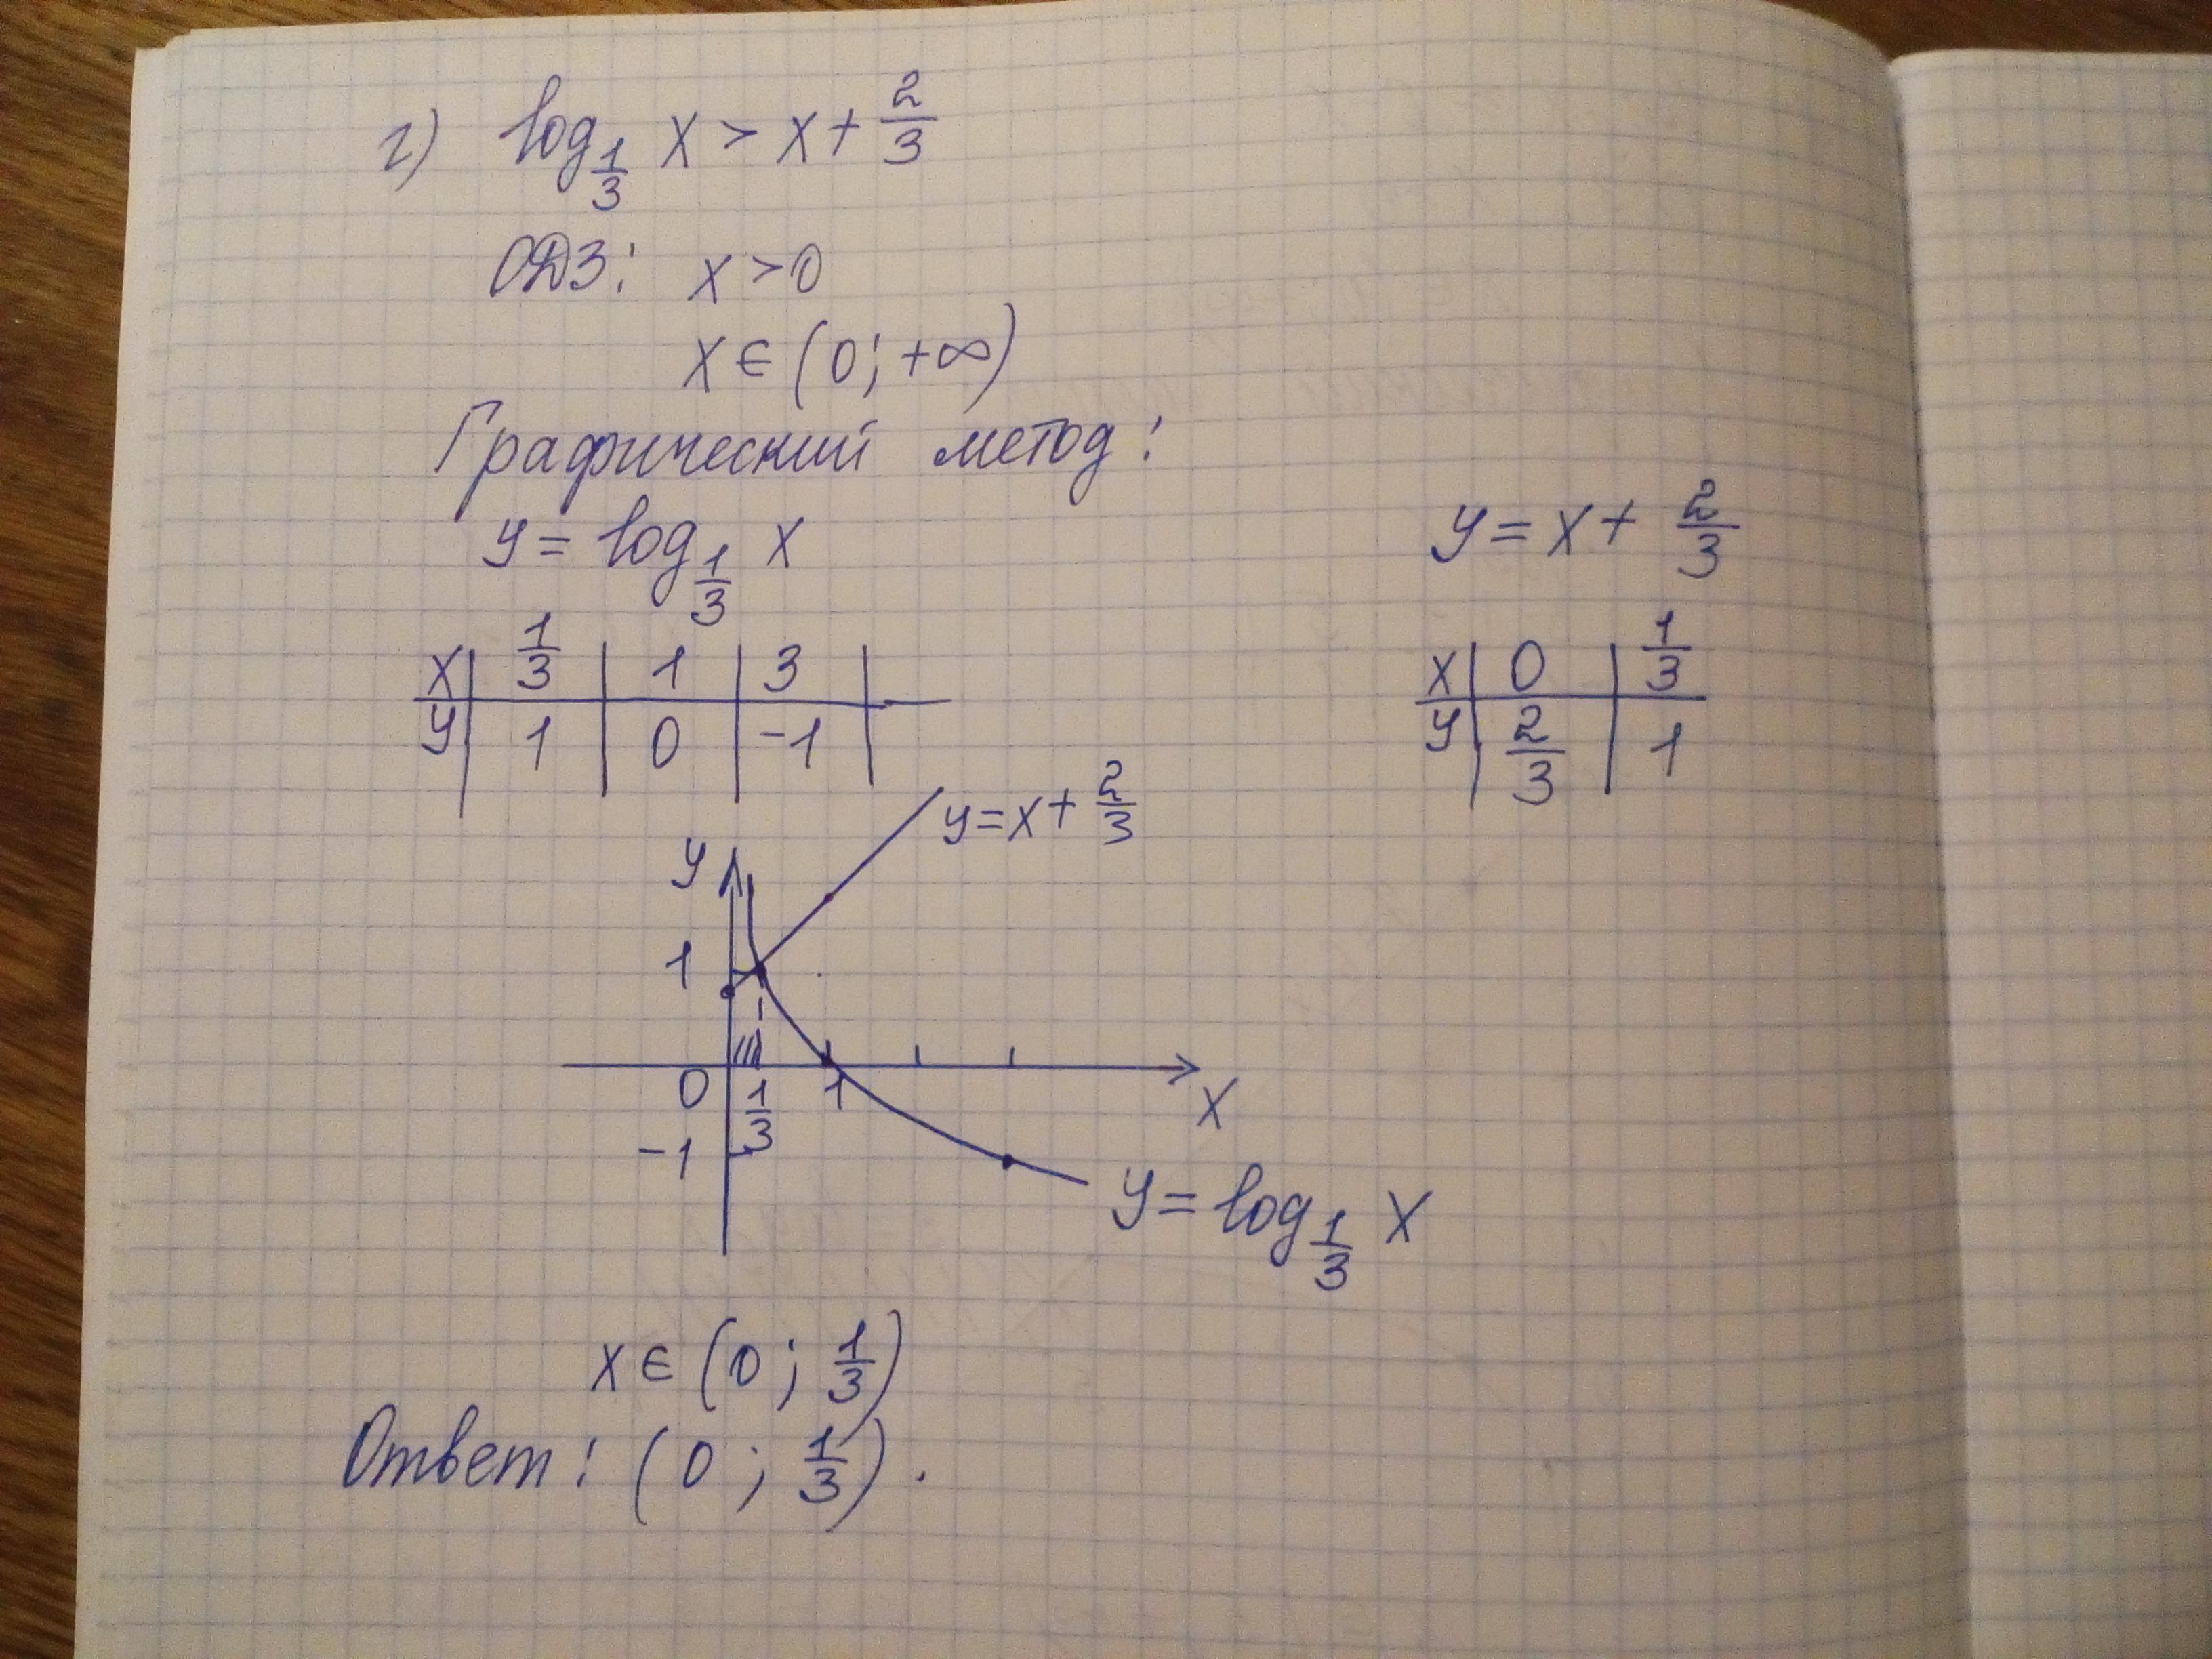 г) log_{1/3} x > x + 2/3
ОДЗ: x > 0
x ∈ (0; +∞)
Графический метод:
y = log_{1/3} x
y = x + 2/3
x | 1/3 | 1 | 3 |
y | 1 | 0 | -1 |
x | 0 | 1/3
y | 2/3 | 1
y = x + 2/3
y
1
0
1/3
1
x
-1
y = log_{1/3} x
x ∈ (0; 1/3)
Ответ: (0; 1/3).